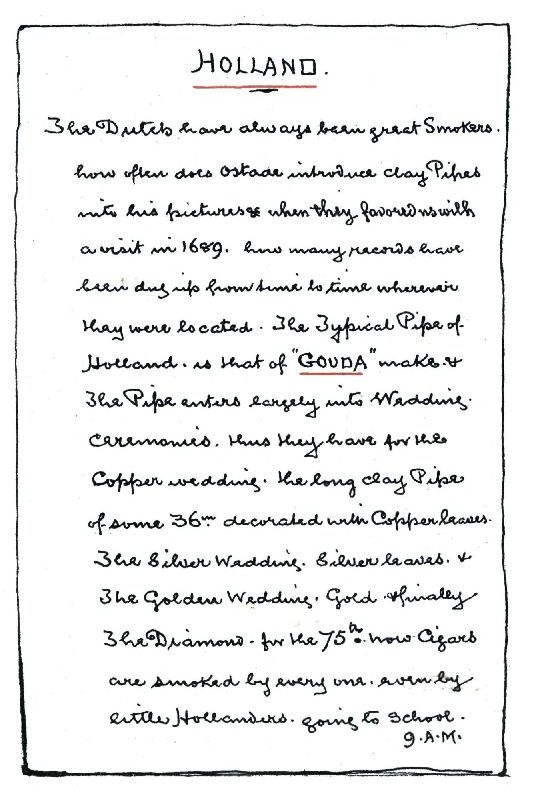 HOLLAND.
The Dutch have always been great Smokers.
how often does Ostade introduce clay Pipes
into his pictures & when they favored us with
a visit in 1689. how many records have
been dug up from time to time wherever
they were located. The Typical Pipe of
Holland. is that of "GOUDA" make. &
The Pipe enters largely into Wedding.
Ceremonies. thus they have for the
Copper wedding. the long clay Pipe
of some 36in decorated with Copper leaves.
The Silver Wedding. Silver leaves. &
The Golden Wedding. Gold. & finally
The Diamond. for the 75th. now Cigars
are smoked by every one. even by
little Hollanders. going to School.
9.A.M.